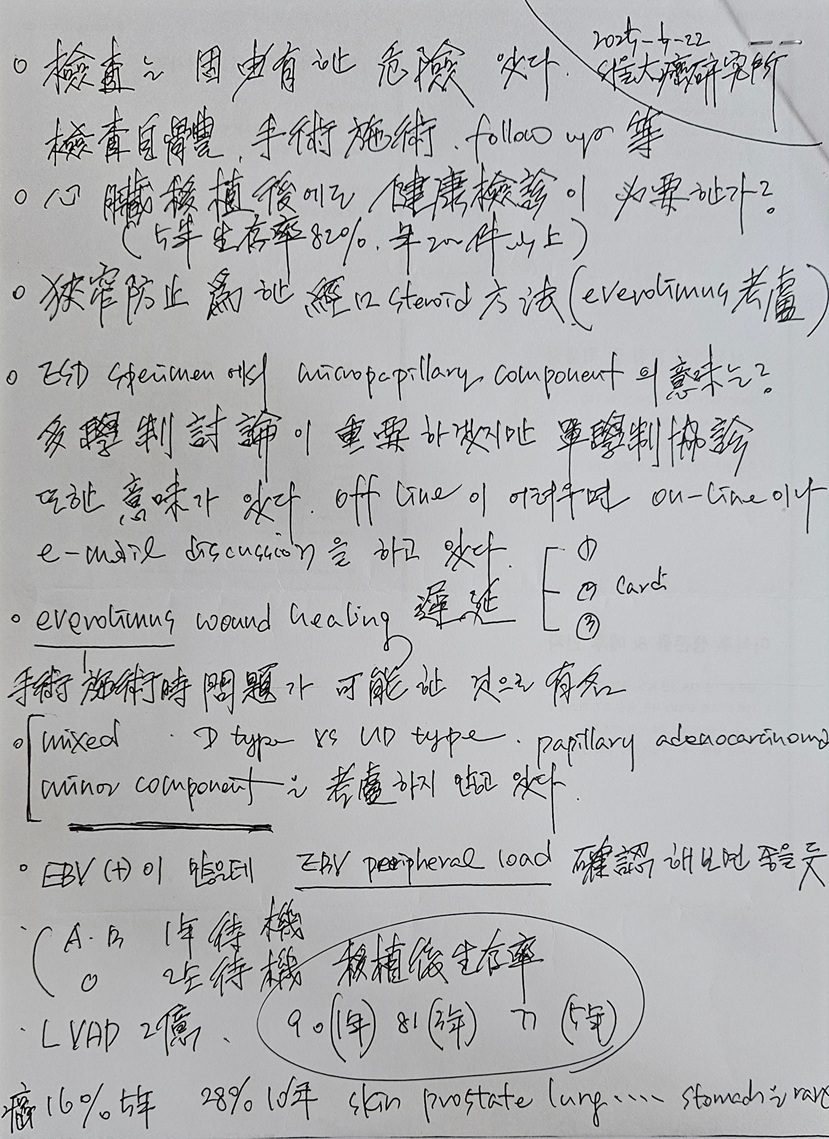 2025-4-22
○ 檢査는 因由有한 危險 있다.
大癌硏究所
檢査自體, 手術 施術, follow up 等
○ 心臟移植後에도 健康檢診이 必要한가?
(5年 生存率 82%, 年 200件 以上)
○ 狹窄防止 爲한 經口 steroid 方法 (everolimus 考慮)
○ ESD specimen에서 micropapillary component의 意味는?
多學制討論이 重要하겠지만 單學制協診
또한 意味가 있다. off line이 어려우면 on-line이나
e-mail discussion을 하고 있다.
①
② Cardi
③
○ everolimus wound healing 遲延
手術 施術時 問題가 可能한 것으로 有名
○ mixed · D type vs UD type. papillary adenocarcinoma
minor component는 考慮하지 않고 있다.
○ EBV (+)이 많은데 EBV peripheral load 確認해보면 좋을 듯
· A·B 1年 待機
O 2年 待機
移植後生存率
90 (1年) 81 (3年) 77 (5年)
· LVAD 2億.
癌 16% 5年 28% 10年 skin prostate lung ····· stomach는 rare